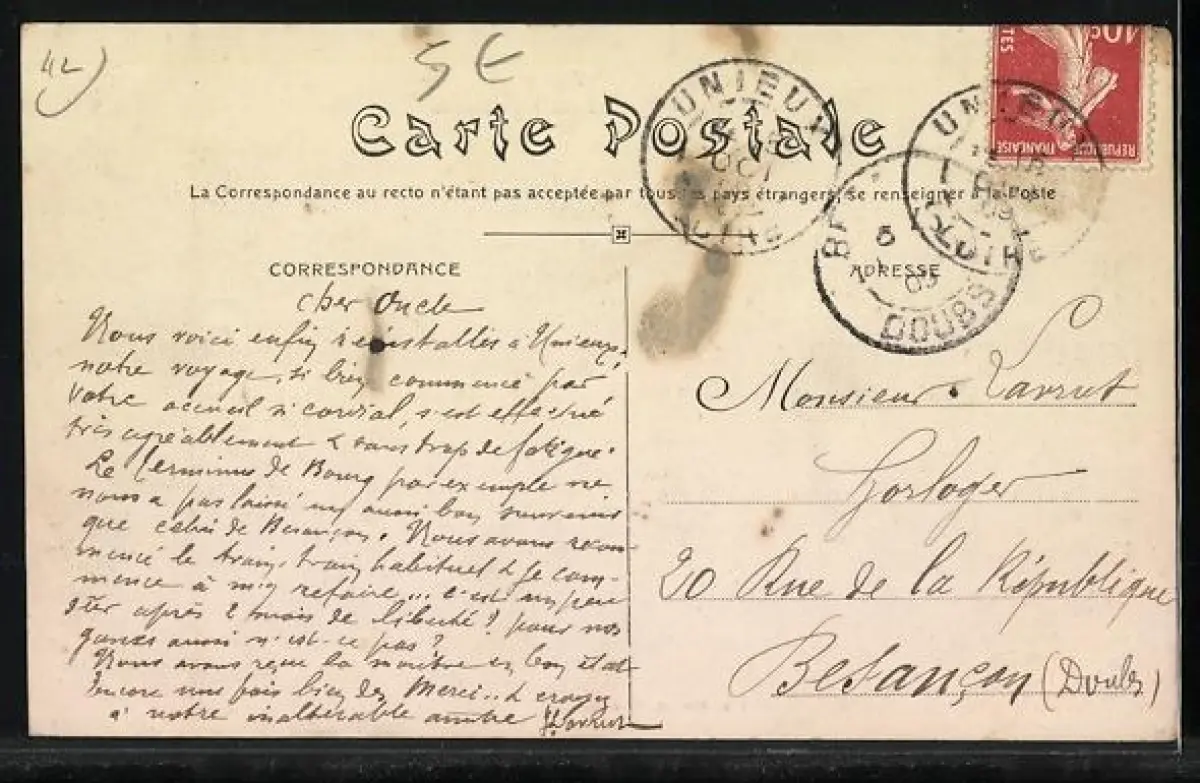 42
SE
10c
RÉPUBLIQUE FRANÇAISE
Carte Postale
UNIEUX
OCT
LOIRE
UNIEUX
LOIRE
La Correspondance au recto n'étant pas acceptée par tous les pays étrangers, se renseigner à la Poste
5
DOUBS
CORRESPONDANCE
ADRESSE
Cher Oncle
Nous voici enfin réinstallés à Unieux,
notre voyage, si bien commencé par
votre accueil si cordial, s'est effectué
très agréablement & sans trop de fatigue.
Le Terminus de Bourg par exemple ne
nous a pas laissé un aussi bon souvenir
que celui de Besançon. Nous avons recom-
mencé le train-train habituel & je com-
mence à m'y refaire... c'est un peu
après 2 mois de liberté? pour nos
aussi n'est-ce pas?
Nous avons reçu la montre en bon état
encore une fois bien des Merci.. &
à notre inaltérable amitié
Monsieur Lavrut
Horloger
20 Rue de la République
Besançon (Doubs)